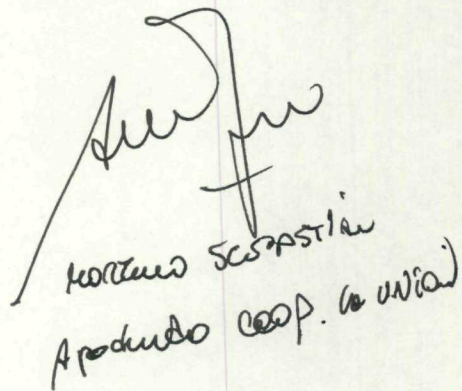 Moreno SEBASTIÁN
Apoderado COOP. la UNION